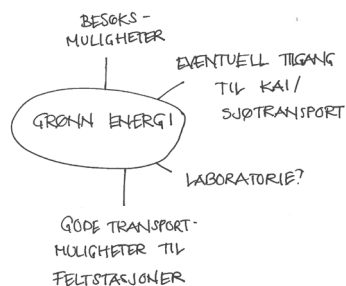 BESØKS-
MULIGHETER
EVENTUELL TILGANG
TIL KAI/
SJØTRANSPORT
GRØNN ENERGI
LABORATORIE?
GODE TRANSPORT-
MULIGHETER TIL
FELTSTASJONER